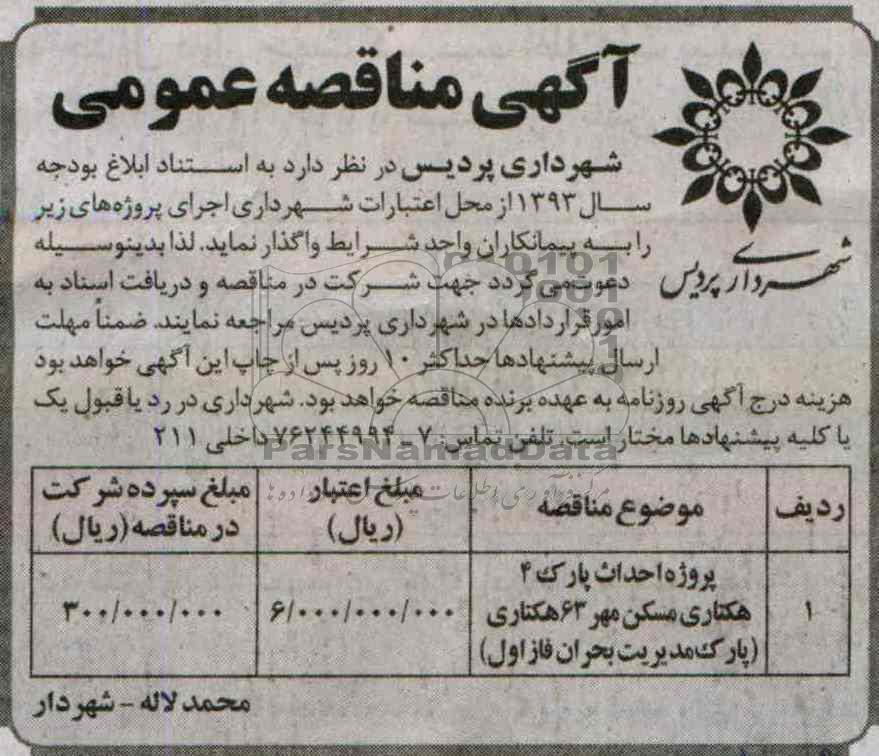 آگهی مناقصه عمومی
شهرداری پردیس
شهرداری پردیس در نظر دارد به استناد ابلاغ بودجه
سال ۱۳۹۳ از محل اعتبارات شهرداری اجرای پروژه‌های زیر
را به پیمانکاران واجد شرایط واگذار نماید. لذا بدینوسیله
دعوت می‌گردد جهت شرکت در مناقصه و دریافت اسناد به
امور قراردادها در شهرداری پردیس مراجعه نمایند. ضمناً مهلت
ارسال پیشنهادها حداکثر ۱۰ روز پس از چاپ این آگهی خواهد بود
هزینه درج آگهی روزنامه به عهده برنده مناقصه خواهد بود. شهرداری در رد یا قبول یک
یا کلیه پیشنهادها مختار است. تلفن تماس: ۷ - ۷۶۲۴۴۹۹۴ داخلی ۲۱۱
ParsNamadData
ردیف
موضوع مناقصه
مبلغ اعتبار
(ریال)
مبلغ سپرده شرکت
در مناقصه (ریال)
۱
پروژه احداث پارک ۴
هکتاری مسکن مهر ۶۳ هکتاری
(پارک مدیریت بحران فاز اول)
۶/۰۰۰/۰۰۰/۰۰۰
۳۰۰/۰۰۰/۰۰۰
محمد لاله - شهردار